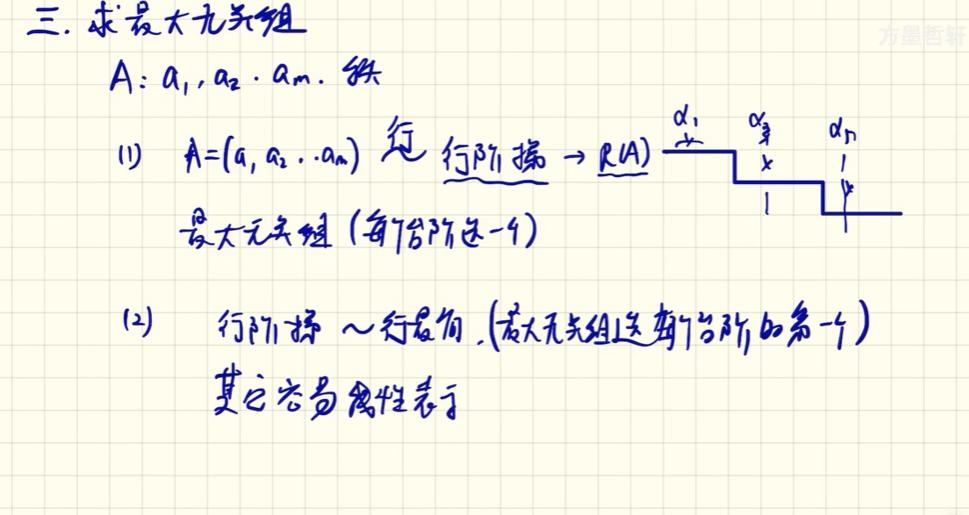 三. 求最大无关组
方墨哲轩
A: a₁, a₂ . aₘ. 秩
(1) A=(a₁ a₂ .. aₘ) 行 行阶梯 → R(A) α₁ α₃ αₙ
最大无关组 (每个台阶选一个)
(2) 行阶梯 ~ 行最简. (最大无关组选每个台阶的第一个)
其它容易线性表示